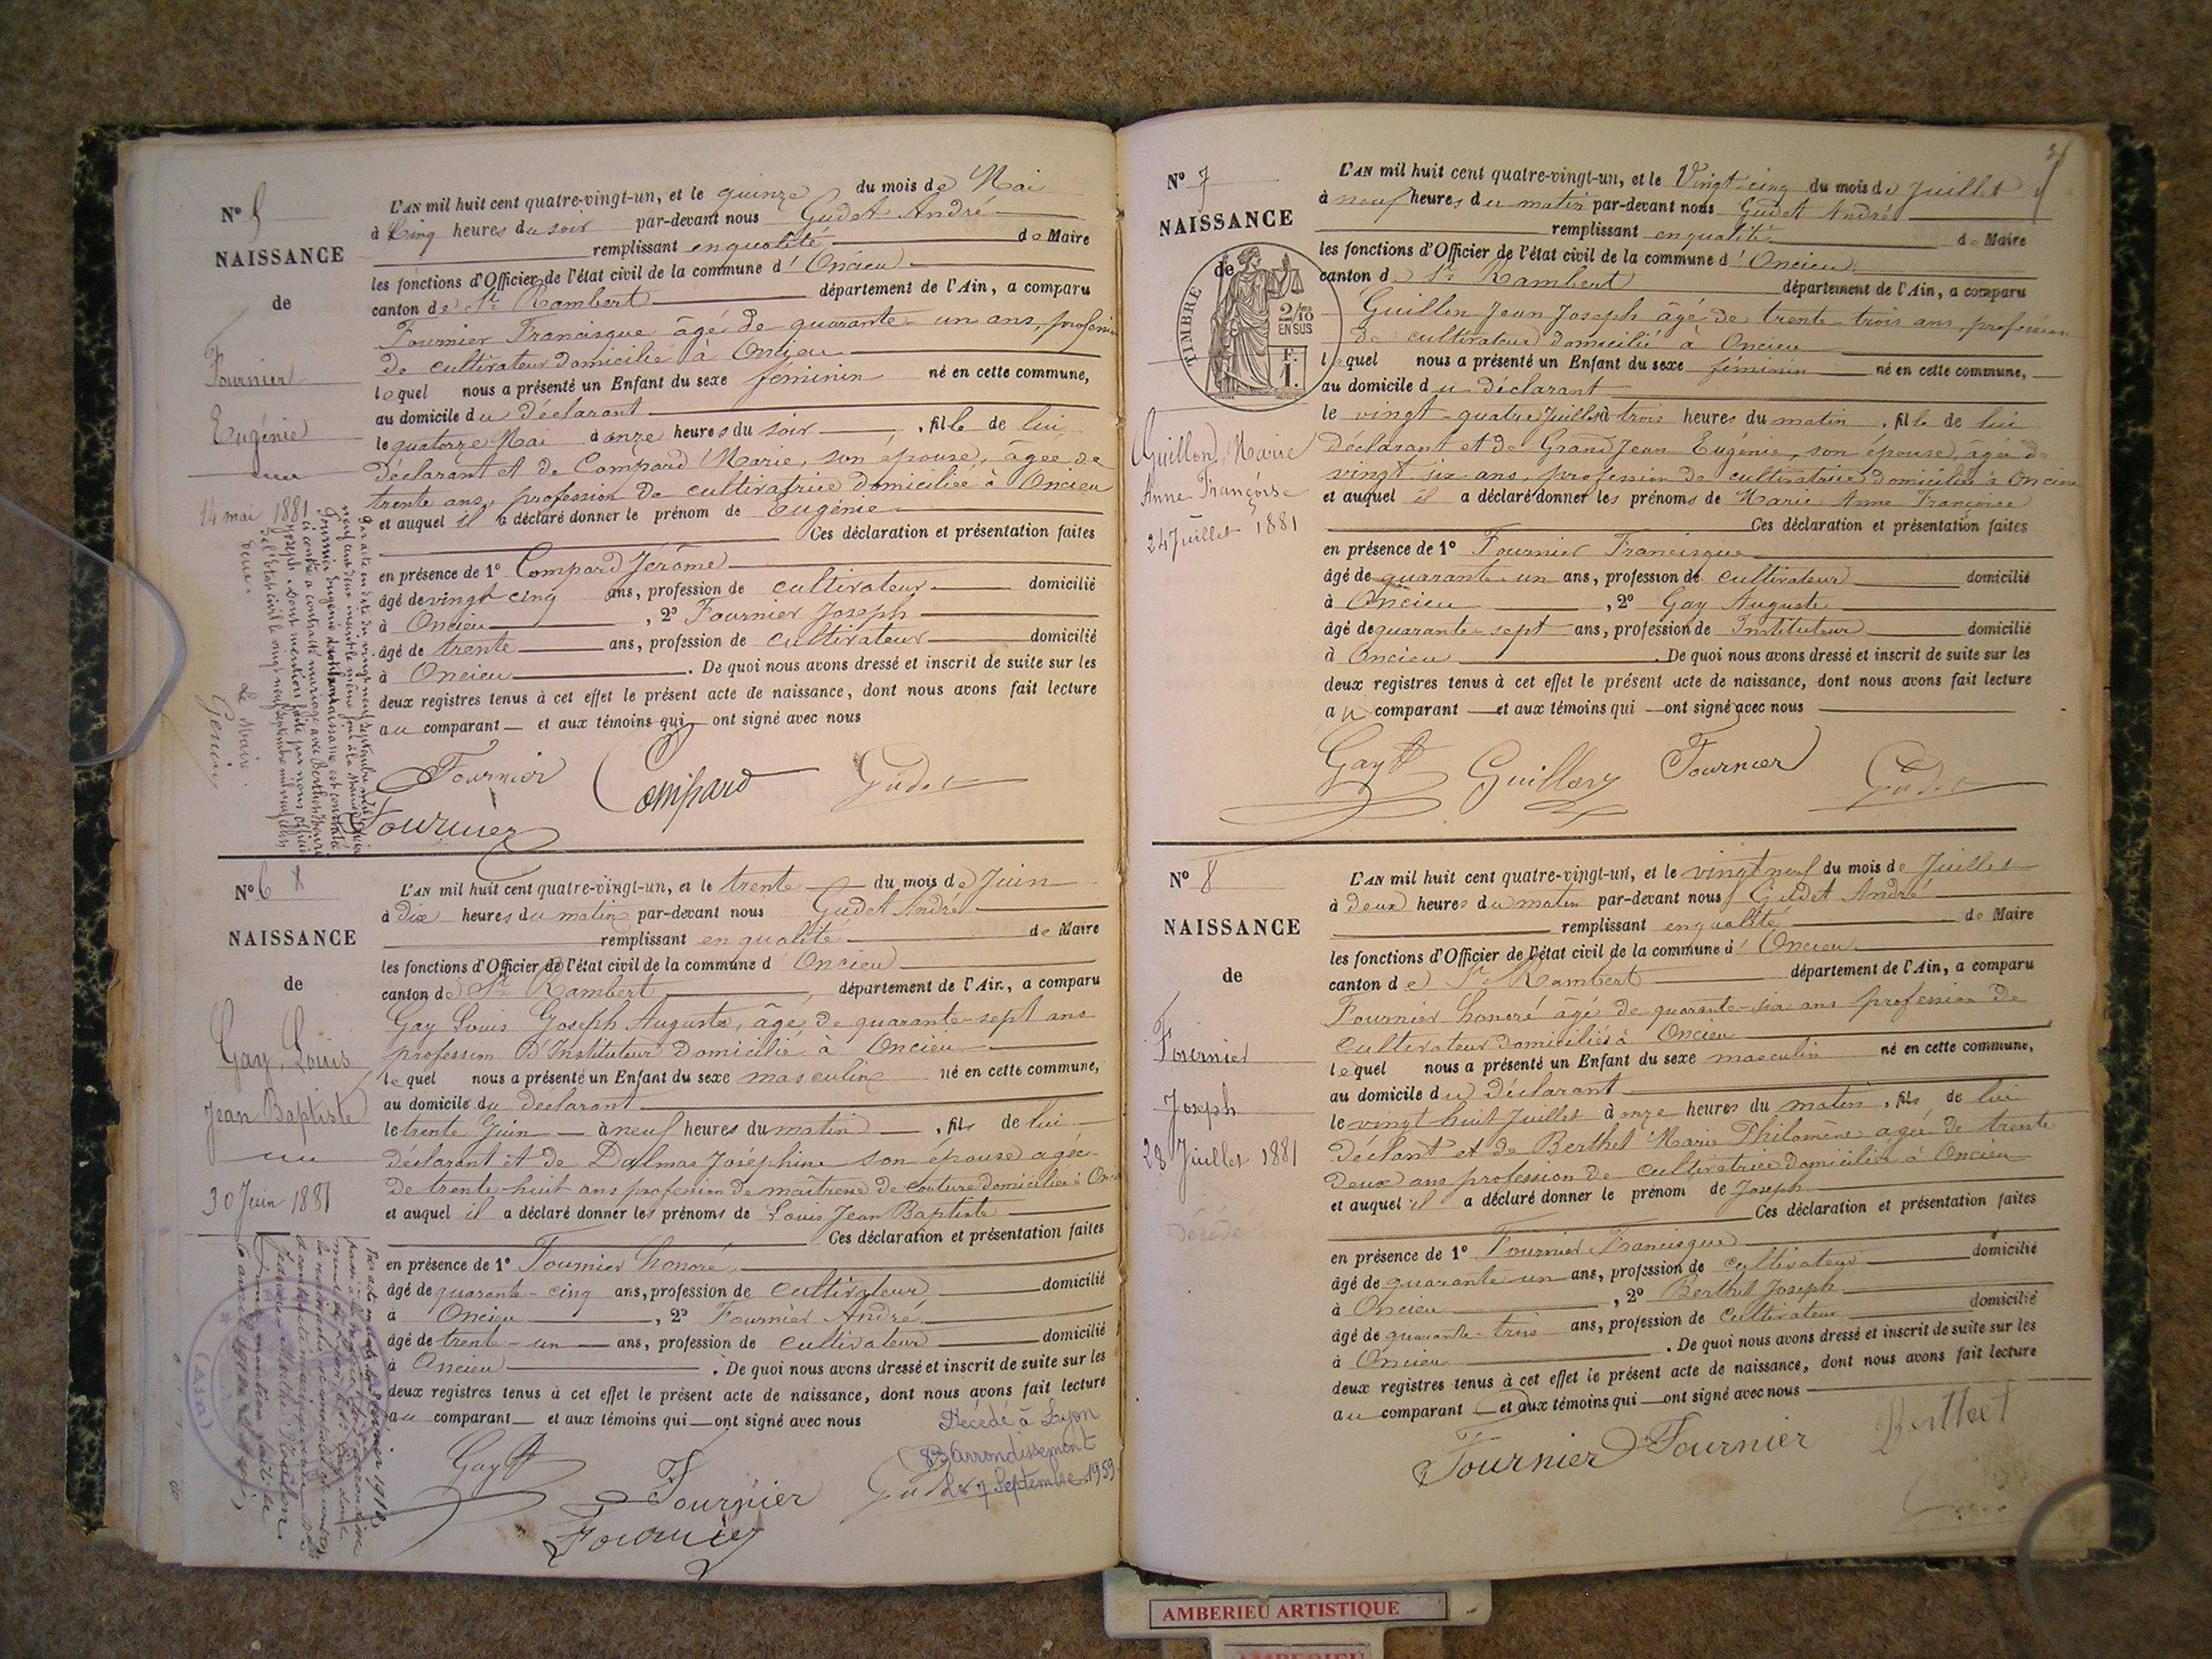 N° 5
NAISSANCE
de
Fournier
Eugénie
14 mai 1881
Le Maire
L'AN mil huit cent quatre-vingt-un, et le quinze du mois de Mai
à Cinq heures du soir par-devant nous Gudet André
remplissant en qualité de Maire
les fonctions d'Officier de l'état civil de la commune d' Oncieu
canton de St Rambert département de l'Ain, a comparu
Fournier Francisque âgé de quarante-un ans, profession
de cultivateur domicilié à Oncieu
lequel nous a présenté un Enfant du sexe féminin né en cette commune,
au domicile du déclarant
le quatorze Mai à onze heures du soir , fille de lui
déclarant et de Compard Marie, son épouse, âgée de
trente ans, profession de cultivatrice domiciliée à Oncieu
et auquel il a déclaré donner le prénom de Eugénie
Ces déclaration et présentation faites
en présence de 1° Compard Jérôme
âgé de vingt cinq ans, profession de cultivateur domicilié
à Oncieu , 2° Fournier Joseph
âgé de trente ans, profession de cultivateur domicilié
à Oncieu . De quoi nous avons dressé et inscrit de suite sur les
deux registres tenus à cet effet le présent acte de naissance, dont nous avons fait lecture
au comparant et aux témoins qui ont signé avec nous
Fournier Compard Gudet
Fournier
N° 6
NAISSANCE
de
Gay, Louis
Jean Baptiste
30 Juin 1881
L'AN mil huit cent quatre-vingt-un, et le trente du mois de Juin
à Dix heures du matin par-devant nous Gudet André
remplissant en qualité de Maire
les fonctions d'Officier de l'état civil de la commune d' Oncieu
canton de St Rambert , département de l'Ain, a comparu
Gay Louis Joseph Auguste, âgé de quarante-sept ans
profession d'Instituteur domicilié à Oncieu
lequel nous a présenté un Enfant du sexe masculin né en cette commune,
au domicile du déclarant
le trente Juin à neuf heures du matin , fils de lui
déclarant et de Dalmas Joséphine son épouse agée
de trente-huit ans profession de maîtresse de couture domiciliée à Oncieu
et auquel il a déclaré donner les prénoms de Louis Jean Baptiste
Ces déclaration et présentation faites
en présence de 1° Fournier honoré
âgé de quarante-cinq ans, profession de cultivateur domicilié
à Oncieu , 2° Fournier André
âgé de trente-un ans, profession de cultivateur domicilié
à Oncieu . De quoi nous avons dressé et inscrit de suite sur les
deux registres tenus à cet effet le présent acte de naissance, dont nous avons fait lecture
au comparant et aux témoins qui ont signé avec nous
Décédé à Lyon
8e Arrondissement
Le 7 Septembre 1959
Gay Fournier Gudet
Fournier
N° 7
NAISSANCE
de
TIMBRE
2/10
EN SUS
F.
1.
Guillon, Marie
Anne Françoise
24 Juillet 1881
L'AN mil huit cent quatre-vingt-un, et le Vingt-cinq du mois de Juillet
à neuf heures du matin par-devant nous Gudet André
remplissant en qualité de Maire
les fonctions d'Officier de l'état civil de la commune d' Oncieu
canton de St Rambert département de l'Ain, a comparu
Guillon Jean Joseph âgé de trente-trois ans, profession
de cultivateur domicilié à Oncieu
lequel nous a présenté un Enfant du sexe féminin né en cette commune,
au domicile du déclarant
le vingt-quatre Juillet à trois heures du matin , fille de lui
déclarant et de Grand Jean Eugénie, son épouse, âgée de
vingt six ans, profession de cultivatrice domiciliée à Oncieu
et auquel il a déclaré donner les prénoms de Marie Anne Françoise
Ces déclaration et présentation faites
en présence de 1° Fournier Francisque
âgé de quarante-un ans, profession de cultivateur domicilié
à Oncieu , 2° Gay Auguste
âgé de quarante-sept ans, profession de Instituteur domicilié
à Oncieu . De quoi nous avons dressé et inscrit de suite sur les
deux registres tenus à cet effet le présent acte de naissance, dont nous avons fait lecture
au comparant et aux témoins qui ont signé avec nous
Gay Guillon Fournier Gudet
N° 8
NAISSANCE
de
Fournier
Joseph
28 Juillet 1881
Décédé
L'AN mil huit cent quatre-vingt-un, et le vingt neuf du mois de Juillet
à deux heures du matin par-devant nous Gudet André
remplissant en qualité de Maire
les fonctions d'Officier de l'état civil de la commune d' Oncieu
canton de St Rambert département de l'Ain, a comparu
Fournier honoré âgé de quarante-six ans profession de
cultivateur domicilié à Oncieu
lequel nous a présenté un Enfant du sexe masculin né en cette commune,
au domicile du déclarant
le vingt huit Juillet à onze heures du matin , fils de lui
déclant et de Berthet Marie Philomène agée de trente
deux ans profession de cultivatrice domiciliée à Oncieu
et auquel il a déclaré donner le prénom de Joseph
Ces déclaration et présentation faites
en présence de 1° Fournier Francisque
âgé de quarante un ans, profession de cultivateur domicilié
à Oncieu , 2° Berthet Joseph
âgé de quarante-trois ans, profession de cultivateur domicilié
à Oncieu . De quoi nous avons dressé et inscrit de suite sur les
deux registres tenus à cet effet le présent acte de naissance, dont nous avons fait lecture
au comparant et aux témoins qui ont signé avec nous
Fournier Fournier Berthet
AMBERIEU ARTISTIQUE
AMBERIEU